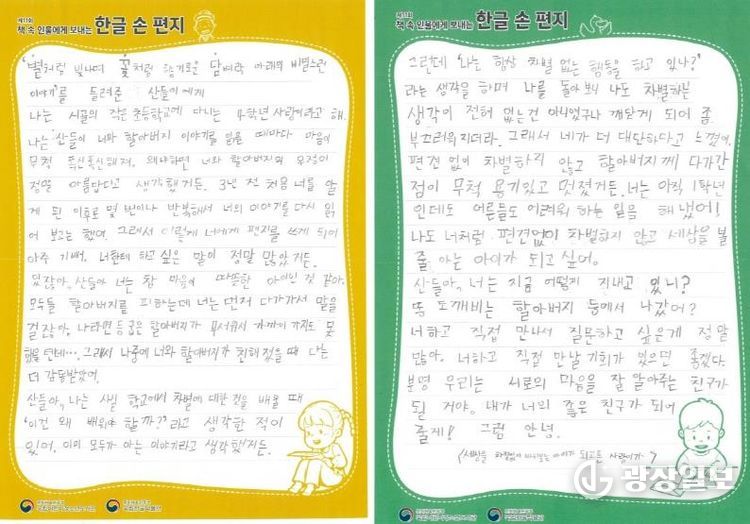 제11회
책 속 인물에게 보내는 한글 손 편지
'별처럼 빛나며 꽃처럼 향기로운 담벼락 아래의 비밀스런
이야기'를 들려준 산들이에게
나는 시골의 작은 초등학교에 다니는 4학년 사랑이라고 해.
나는 산들이 너와 할아버지 이야기를 읽을 때마다 마음이
무척 푹신푹신해져. 왜냐하면 너와 할아버지의 우정이
정말 아름답다고 생각했거든. 3년 전 처음 너를 알
게 된 이후로 몇 번이나 반복해서 너의 이야기를 다시 읽
어 보고는 했어. 그래서 이렇게 너에게 편지를 쓰게 되어
아주 기뻐. 너한테 하고 싶은 말이 정말 많았거든.
있잖아, 산들아 너는 참 마음이 따뜻한 아이인 것 같아.
모두들 할아버지를 피하는데 너는 먼저 다가가서 말을
걸잖아. 나라면 등 굽은 할아버지가 무서워서 가까이 가지도 못
했을 텐데…. 그래서 나중에 너와 할아버지가 친해졌을 때 나는
더 감동받았어.
산들아, 나는 사실 학교에서 차별에 대한 것을 배울 때
'이건 왜 배워야 할까?'라고 생각한 적이
있어. 이미 모두가 아는 이야기라고 생각했거든.
국립어린이청소년도서관
국립한글박물관
제11회
책 속 인물에게 보내는 한글 손 편지
그런데 '나는 항상 차별 없는 행동을 하고 있나?'
라는 생각을 하며 나를 돌아보니 나도 차별하는
생각이 전혀 없는건 아니었구나 깨닫게 되어 좀
부끄러워지더라. 그래서 네가 더 대단하다고 느꼈어.
편견 없이 차별하지 않고 할아버지께 다가간
점이 무척 용기있고 멋졌거든. 너는 아직 1학년
인데도 어른들도 어려워 하는 일을 해 냈어!
나도 너처럼 편견없이 차별하지 않고 세상을 볼
줄 아는 아이가 되고 싶어.
산들아, 너는 지금 어떻게 지내고 있니?
똥 도깨비는 할아버지 등에서 나갔어?
너하고 직접 만나서 질문하고 싶은게 정말
많아. 너하고 직접 만날 기회가 있으면 좋겠다.
분명 우리는 서로의 마음을 잘 알아주는 친구가
될 거야. 내가 너의 좋은 친구가 되어
줄게! 그럼 안녕.
아이가 되고픈 사랑이가
국립어린이청소년도서관
국립한글박물관
광장일보